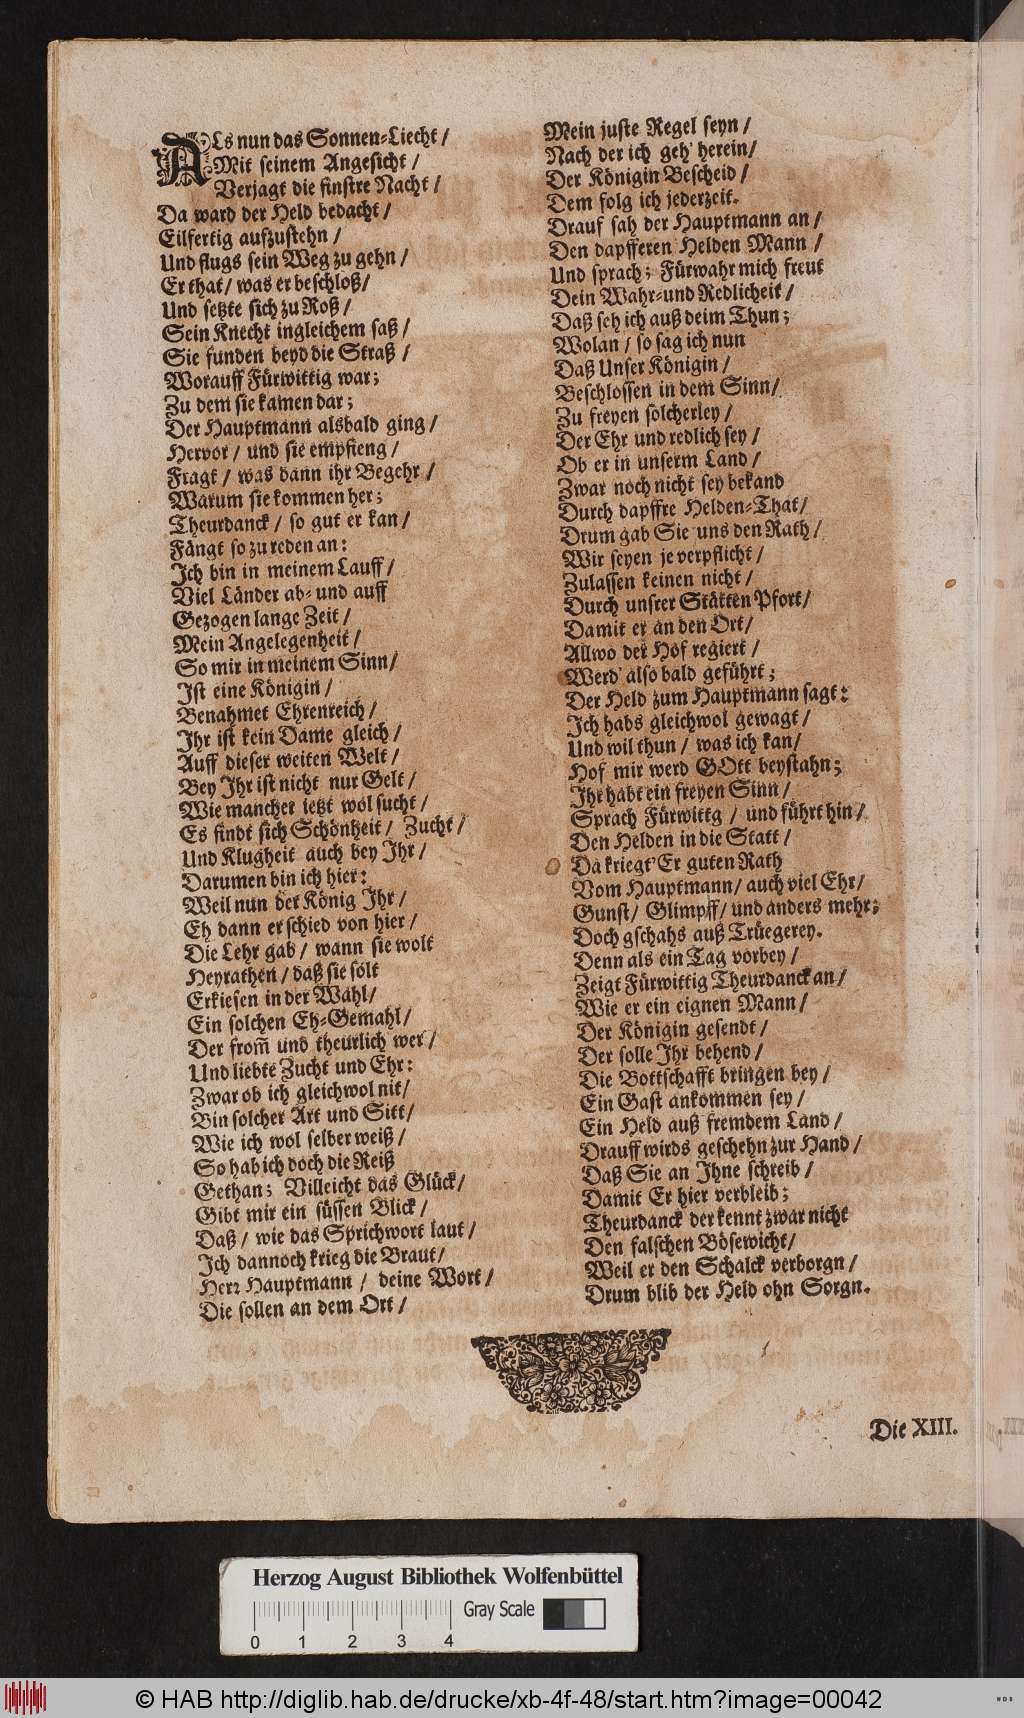 ALs nun das Sonnen-Liecht /
Mit seinem Angesicht /
Verjagt die finstre Nacht /
Da ward der Held bedacht /
Eilfertig aufzustehn /
Und flugs sein Weg zu gehn /
Er that / was er beschloß /
Und setzte sich zu Roß /
Sein Knecht ingleichem saß /
Sie funden beyd die Straß /
Worauff Fürwittig war;
Zu dem sie kamen dar;
Der Hauptmann alsbald ging /
Hervor / und sie empfieng /
Fragt / was dann ihr Begehr /
Warum sie kommen her;
Theurdanck / so gut er kan /
Fängt so zu reden an:
Ich bin in meinem Lauff /
Viel Länder ab- und auff
Gezogen lange Zeit /
Mein Angelegenheit /
So mir in meinem Sinn /
Ist eine Königin /
Benahmet Ehrenreich /
Ihr ist kein Dame gleich /
Auff dieser weiten Welt /
Bey Ihr ist nicht nur Gelt /
Wie mancher ietzt wol sucht /
Es findt sich Schönheit / Zucht /
Und Klugheit auch bey Ihr /
Darumen bin ich hier:
Weil nun der König Ihr /
Eh dann er schied von hier /
Die Lehr gab / wann sie wolt
Heyrathen / daß sie solt
Erkiesen in der Wahl /
Ein solchen Eh-Gemahl /
Der from̃ und theurlich wer /
Und liebte Zucht und Ehr:
Zwar ob ich gleichwol nit /
Bin solcher Art und Sitt /
Wie ich wol selber weiß /
So hab ich doch die Reiß
Gethan; Villeicht das Glück /
Gibt mir ein süssen Blick /
Daß / wie das Sprichwort laut /
Ich dannoch krieg die Braut /
Herr Hauptmann / deine Wort /
Die sollen an dem Ort /
Mein juste Regel seyn /
Nach der ich geh' herein /
Der Königin Bescheid /
Dem folg ich jederzeit.
Drauf sah der Hauptmann an /
Den dapfferen Helden Mann /
Und sprach; Fürwahr mich freut
Dein Wahr-und Redlicheit /
Daß seh ich auß deim Thun;
Wolan / so sag ich nun
Daß Unser Königin /
Beschlossen in dem Sinn /
Zu freyen solcherley /
Der Ehr und redlich sey /
Ob er in unserm Land /
Zwar noch nicht sey bekand
Durch dapffre Helden-That /
Drum gab Sie uns den Rath /
Wir seyen je verpflicht /
Zulassen keinen nicht /
Durch unsrer Stätten Pfort /
Damit er an den Ort /
Allwo der Hof regiert /
Werd' also bald geführt;
Der Held zum Hauptmann sagt:
Ich habs gleichwol gewagt /
Und wil thun / was ich kan /
Hof mir werd GOtt beystahn;
Ihr habt ein freyen Sinn /
Sprach Fürwittg / und führt hin /
Den Helden in die Statt /
Da kriegt' Er guten Rath
Vom Hauptmann / auch viel Ehr /
Gunst / Glimpff / und anders mehr;
Doch gschahs auß Trüegerey.
Denn als ein Tag vorbey /
Zeigt Fürwittig Theurdanck an /
Wie er ein eignen Mann /
Der Königin gesendt /
Der solle Ihr behend /
Die Bottschafft bringen bey /
Ein Gast ankommen sey /
Ein Held auß fremdem Land /
Drauff wirds geschehn zur Hand /
Daß Sie an Ihne schreib /
Damit Er hier verbleib;
Theurdanck der kennt zwar nicht
Den falschen Bösewicht /
Weil er den Schalck verborgn /
Drum blib der Held ohn Sorgn.
Die XIII.
Herzog August Bibliothek Wolfenbüttel
Gray Scale
0 1 2 3 4
© HAB http://diglib.hab.de/drucke/xb-4f-48/start.htm?image=00042